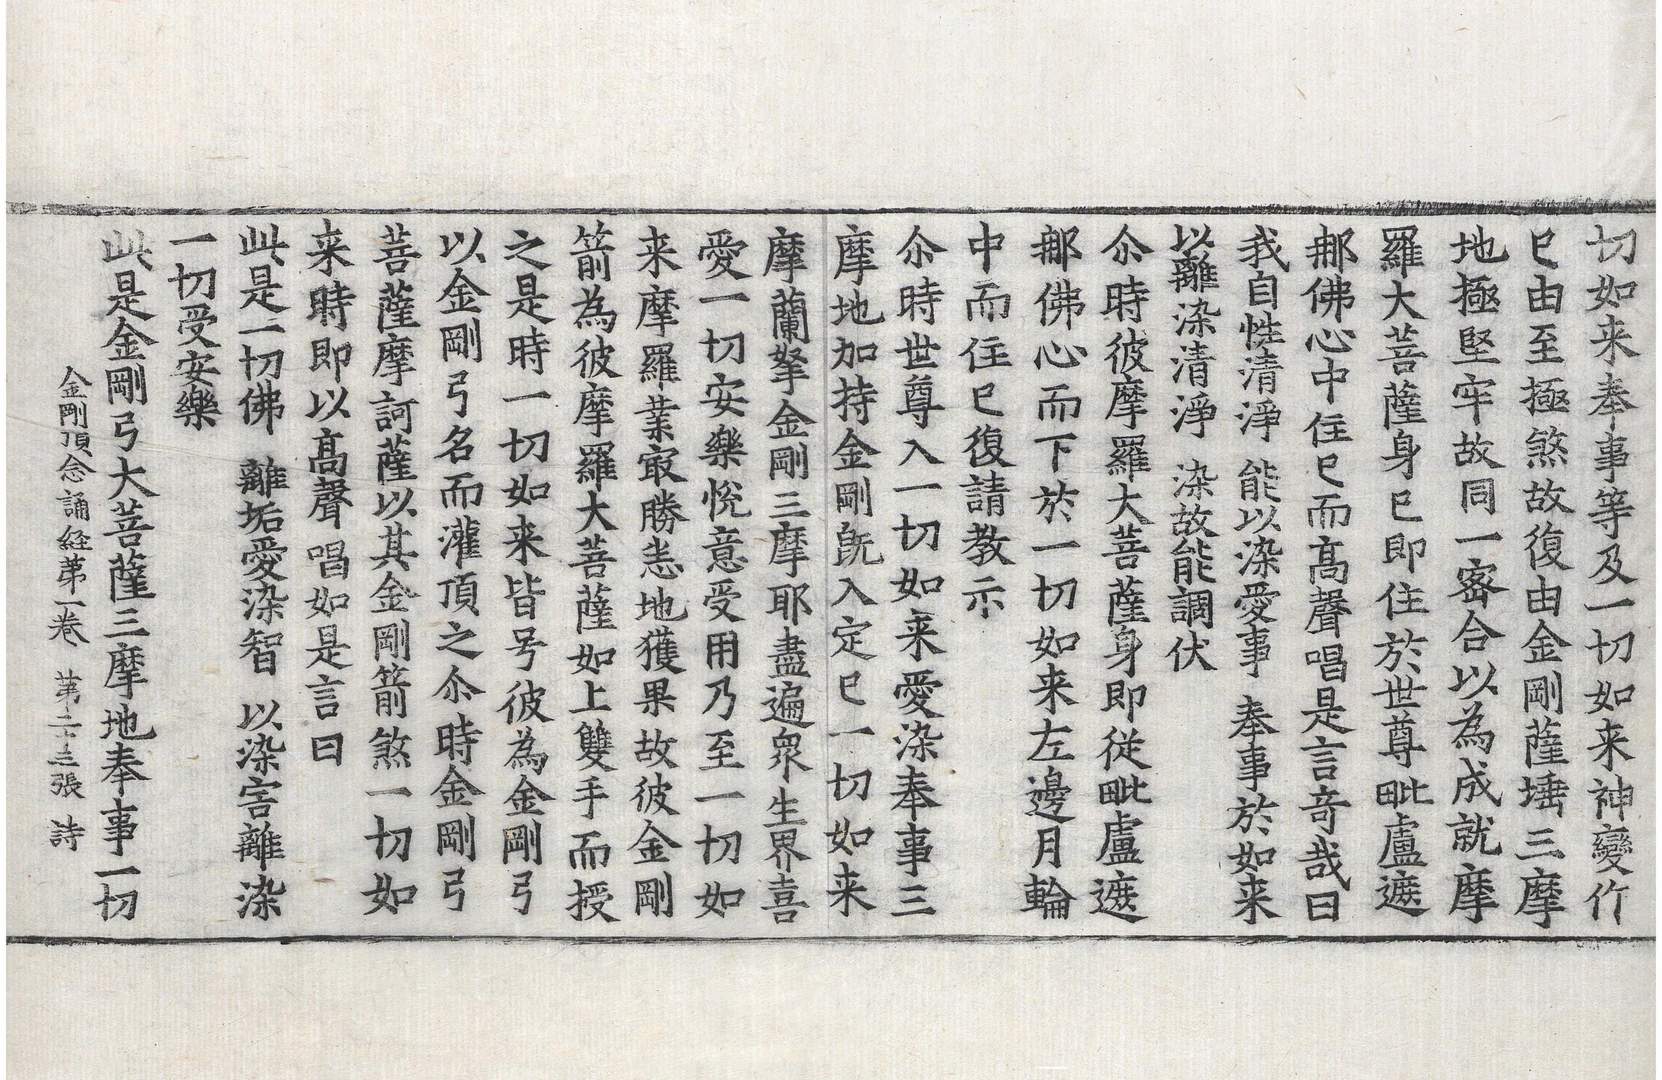 切如来奉事等及一切如来神變作
已由至極煞故復由金剛薩埵三摩
地極堅牢故同一密合以為成就摩
羅大菩薩身已即住於世尊毗盧遮
那佛心中住已而髙聲唱是言竒哉曰
我自性清淨　能以染愛事　奉事於如来
以離染清淨　染故能調伏
尒時彼摩羅大菩薩身即從毗盧遮
那佛心而下於一切如来左邊月輪
中而住已復請教示
尒時世尊入一切如来愛染奉事三
摩地加持金剛旣入定已一切如来
摩蘭拏金剛三摩耶盡遍衆生界喜
愛一切安樂悅意受用乃至一切如
来摩羅業㝡勝悉地獲果故彼金剛
箭為彼摩羅大菩薩如上雙手而授
之是時一切如来皆号彼為金剛弓
以金剛弓名而灌頂之尒時金剛弓
菩薩摩訶薩以其金剛箭煞一切如
来時即以髙聲唱如是言曰
此是一切佛　離垢愛染智　以染害離染
一切受安樂
此是金剛弓大菩薩三摩地奉事一切
金剛頂念誦経苐一卷　苐二十三張　詩